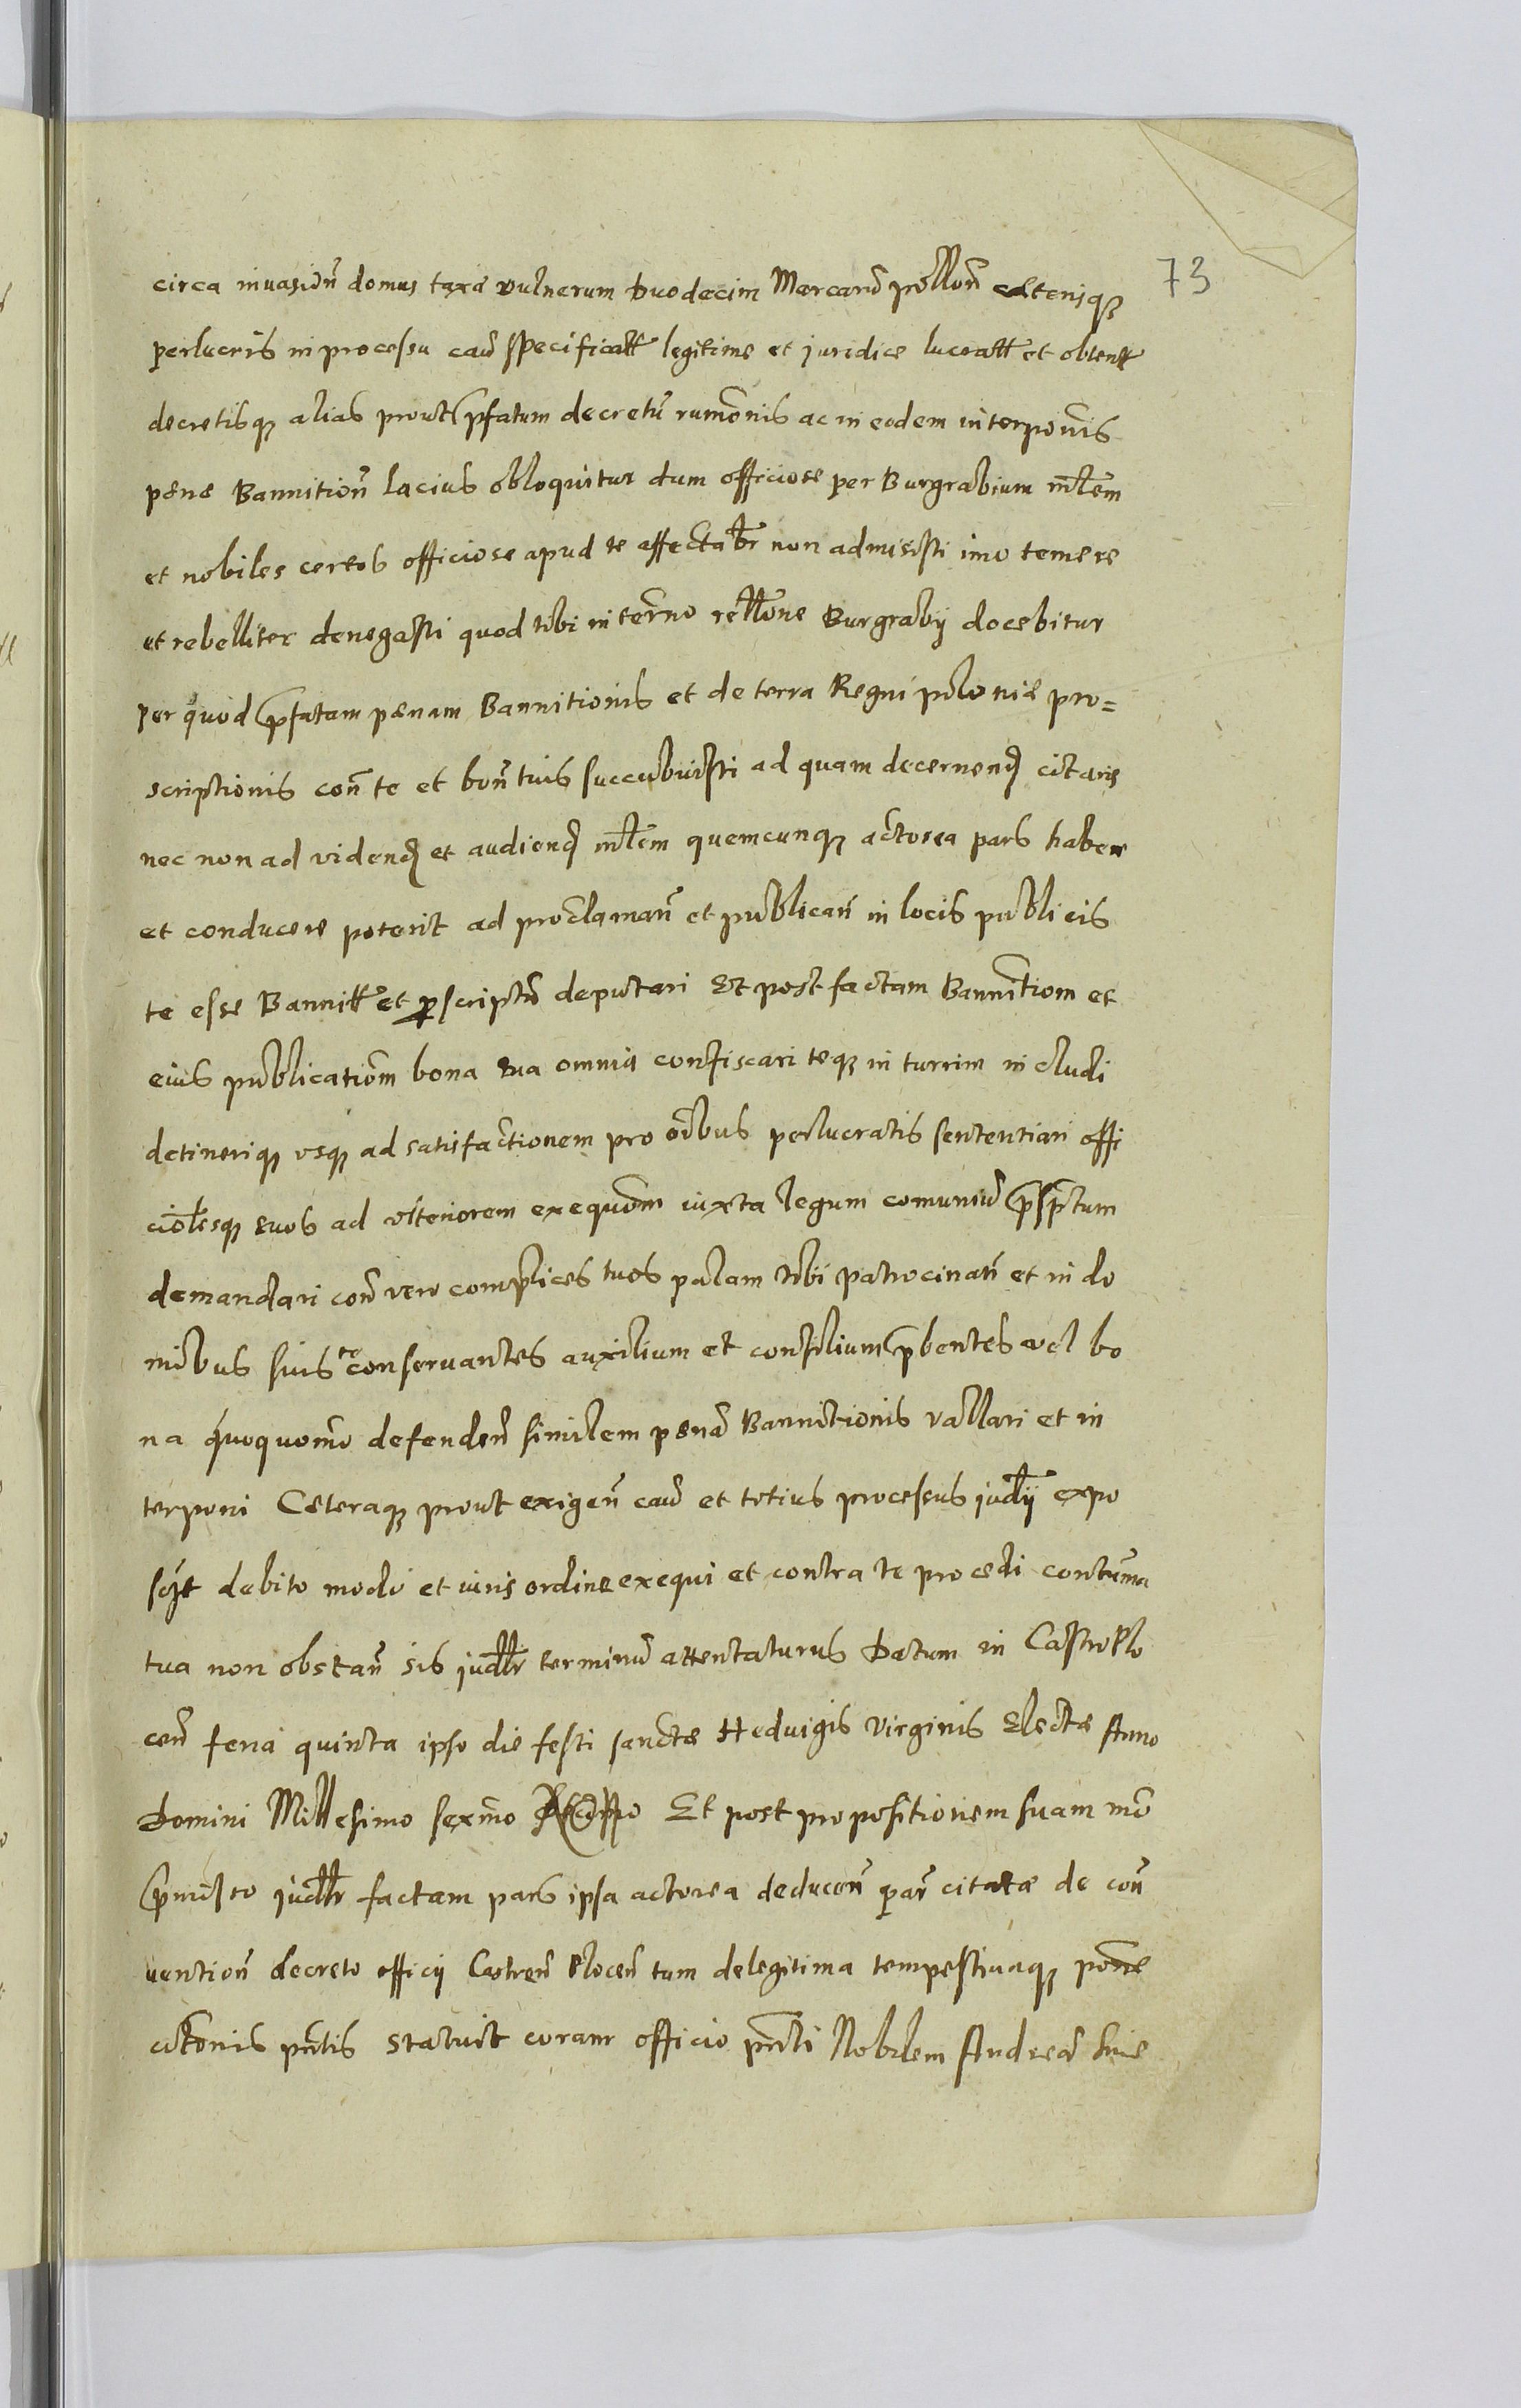 73
circa invasion̄ domus taxæ vulnerum Duodecim Marcarū pollon̄ cæterisq̨
perlucris in processu caū specificatt legitime et juridice lucratt et obtent
decretisq̨ alias prout pfatum decretū rumōnis ac in eodem interpoīts
pænæ Bannition̄ lacius obloquitur dum officiose per Burgrabium mlēm
et nobiles certos officiose apud te affectabr non admisisti imo temere
et rebelliter denegasti quod tibi in termo rellōne Burgrabÿ docebitur
per quod pfatam pænam Bannitionis et de terra Regni poloniæ pro=
scriptionis con̄ te et bon̄ tuis succubuisti ad quam decernend citaris
nec non ad vidend et audiend mlēm quemcunq̨ actorea pars habere
et conducere poterit ad proclaman̄ et publican̄ in locis publicis
te esse Bannitt et pscriptū deputari Et post factam Bannitiom et
eius publicatiōm bona tua omnia confiscari teq̨ in turrim includi
detineriq̨ vsq̨ ad satisfactionem pro oībus perlucratis sententiari offi
ciōlesq̨ suos ad vlteriorem exequōm iuxta legum comuniū pscptum
demandari con̄ vero complices tuos palam tibi patrocinan̄ et in do
mibus suis te conservantes auxilium et consilium pbentes vel bo
na quoquomō defenden̄ similem pænā Bannitionis vallari et in
terponi Cæteraq̨ prout exigen̄ caū et totius processus judÿ expo
scit debito modo et iuris ordine exequi et contra te procedi contuma
tua non obstan̄ sis judllr terminū attentaturus Datum in Castro Plo
cen̄ feria quinta ipso die festi sanctæ Hedvigis Virginis Electæ Anno
Domini Millesimo sexmo Et post propositionem suam mō
pmisso judllr factam pars ipsa actorea deducen̄ par̄ citatæ de con̄
vention̄ decreto officÿ Castren̄ Plocen̄ tum de legitima tempestivaq̨ pōne
citōnis pn̄tis statuit coram officio pn̄ti Nobilem Andreā